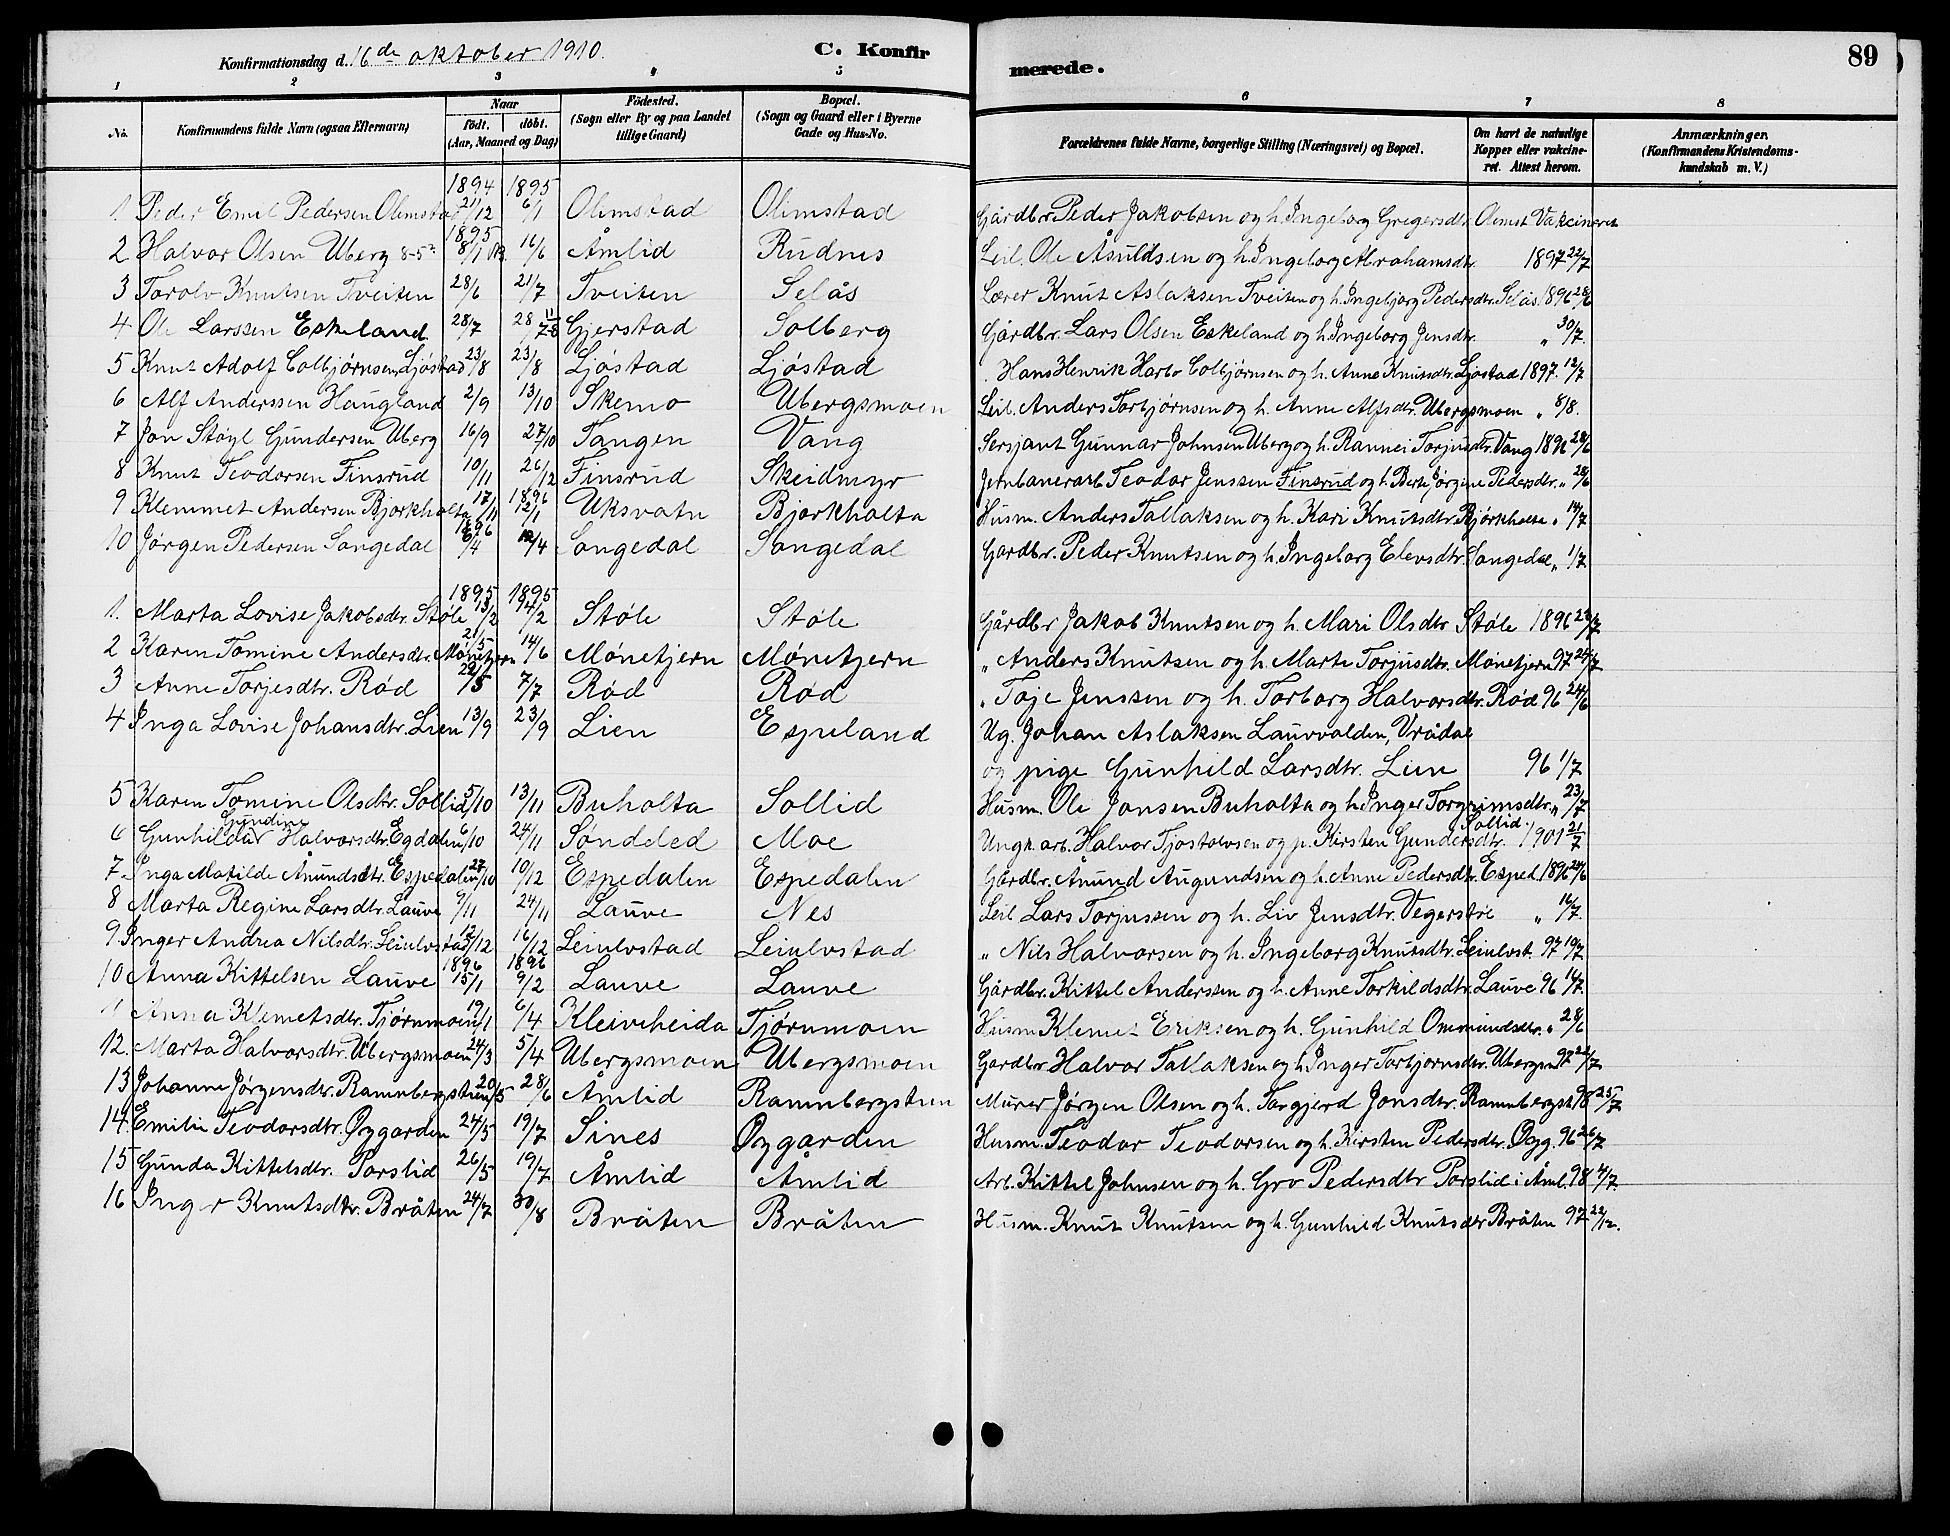 Konfirmationsdag d. 16de oktober 1910.
C. Konfirmerede.
89
1 2 3 4 5 6 7 8
No. Konfirmandens fulde Navn (ogsaa Efternavn) Naar født. døbt. (Aar, Maaned og Dag) Fødested. (Sogn eller By og paa Landet tillige Gaard) Bopæl. (Sogn og Gaard eller i Byerne Gade og Hus-No. Forældrenes fulde Navne, borgerlige Stilling (Næringsvei) og Bopæl. Om havt de naturlige Kopper eller vakcineret. Attest herom. Anmærkninger. (Konfirmandens Kristendomskundskab m. V.)
1894 1895
1 Peder Emil Pedersen Olimstad 21/12 6/1 Olimstad Olimstad Gårdbr. Peder Jakobsen og h. Ingeborg Gregersdtr. Olimst Vakcineret
1895
2 Halvor Olsen Uberg 8/1 16/6 Åmlid Rudnes Leil. Ole Åsuldsen og h. Ingeborg Abrahamsdtr. 1897 22/7
3 Torolv Knutsen Tveiten 28/6 21/7 Tveiten Selås Lærer Knut Aslaksen Tveiten og h. Ingebjørg Pedersdtr. Selås. 1896 28/6
4 Ole Larssen Eskeland 28/7 28/7 Gjerstad Solberg Gårdbr. Lars Olsen Eskeland og h. Ingeborg Jensdtr. " 30/7.
5 Knut Adolf Colbjørnsen Ljøstad 23/8 23/8 Ljøstad Ljøstad Hans Henrik Harbo Colbjørnsen og h. Anne Knutsdtr. Ljøstad 1897. 12/7
6 Alf Anderssen Haugland 2/9 13/10 Skemo Ubergsmoen Leil. Anders Torbjørnsen og h. Anne Alfsdtr. Ubergsmoen " 8/8.
7 Jon Støyl Gundersen Uberg 16/9 27/10 Tangen Vang Sersjant Gunnar Johnsen Uberg og h. Rannei Torjusdtr. Vang 1896 28/6
8 Knut Teodorsen Finsrud 10/11 26/12 Finsrud Skeidmyr Jernbanearb Teodor Jenssen Finsrud og h. Berte Jørgine Pedersdtr. " 28/6
1896
9 Klemmet Andersen Bjorkholta 17/11 12/1 Uksvatn Bjorkholta Husm. Anders Tallaksen og h. Kari Knutsdtr. Bjørkholta " 14/7
1896
10 Jørgen Pedersen Songedal 6/4 /4 Songedal Songedal Gardbr. Peder Knutsen og h. Ingeborg Elevsdtr. Songedal " 1/7
1895 1895
1. Marta Lovise Jakobsdtr. Støle 13/2 14/2 Støle Støle Gårdbr Jakob Knutsen og h. Mari Olsdtr Støle 1896 23/7
2 Karen Tomine Andersdtr. Mønetjern 21/5 14/6 Mønetjern Mønetjern " Anders Knutsen og h. Marte Torjusdtr. Mønetjern 97 24/7
3 Anne Torjesdtr. Rød 22/5 7/7 Rød Rød " Toje Jenssen og h. Torborg Halvorsdtr. Rød 96 24/6
4 Inga Lovise Johansdtr. Lien 13/9 23/9 Lien Espeland Ug. Johan Aslaksen Lauvvalden, Vrådal
og pige Gunhild Larsdtr. Lien 96 1/7
5 Karen Tomine Olsdtr. Sollid 5/10 13/11 Buholta Sollid Husm. Ole Jonsen Buholta og h. Inger Torgrimsdtr. " 23/7
Gundine Sollid
6 Gunhilda Halvorsdtr. Egdalen 6/10 24/11 Søndeled Moe Ungk. arb. Halvor Tjostolvsen og p. Kirsten Gundersdtr. 1901 21/7
7 Inga Matilde Åmundsdtr. Espedalen 27/10 10/12 Espedalen Espedalen Gårdbr. Åmund Augundsen og h. Anne Pedersdtr. Esped. 1896 24/6
8 Marta Regine Larsdtr. Lauve 9/11 24/11 Lauve Nes Leil Lars Torjussen og h. Liv Jensdtr. Vegerstøe " 16/7.
9 Inger Andrea Nilsdtr. Leiulvstad 12/12 16/12 Leiulvstad Leiulvstad " Nils Halvorsen og h. Ingeborg Knutsdtr. Leiulvst. 97 19/7.
1896 1896
10 Anna Kittelsen Lauve 15/1 9/2 Lauve Lauve Gårdbr. Kittel Anderssen og h. Anne Torkildsdtr. Lauve 96 14/7.
11 Anna Klemetsdtr. Tjørnmoen 19/1 6/4 Kleivcheida Tjørnmoen Husm Klemet Eriksen og h. Gunhild Ommundsdtr. " 28/6
12. Marta Halvorsdtr. Ubergsmoen 24/3 5/4 Ubergsmoen Ubergsmoen Gardbr Halvor Tallaksen og h. Inger Torbjornsdtr. Ubergsm 97 22/7
13 Johanne Jørgensdtr. Ramnbergstien 20/5 28/6 Åmlid Ramnbergstien Murer Jørgen Olsen og h. Torgjerd Jonsdtr. Ramnbergst. 98 25/7
14. Emilie Teodorsdtr. Øygarden 24/5 19/7 Sines Øygarden Husm. Teodor Teodorsen og h. Kirsten Pedersdtr. Øyg. 96 26/7
15 Gunda Kittelsdtr. Porslid 26/5 19/7 Åmlid Åmlid Arb. Kittel Johnsen og h. Gro Pedersdtr Porslid i Åml. 98 4/7.
16 Inger Knutsdtr. Bråten 24/7 30/8 Bråten Bråten Husm. Knut Knutsen og h. Gunhild Knutsdtr Bråten 97 22/12.